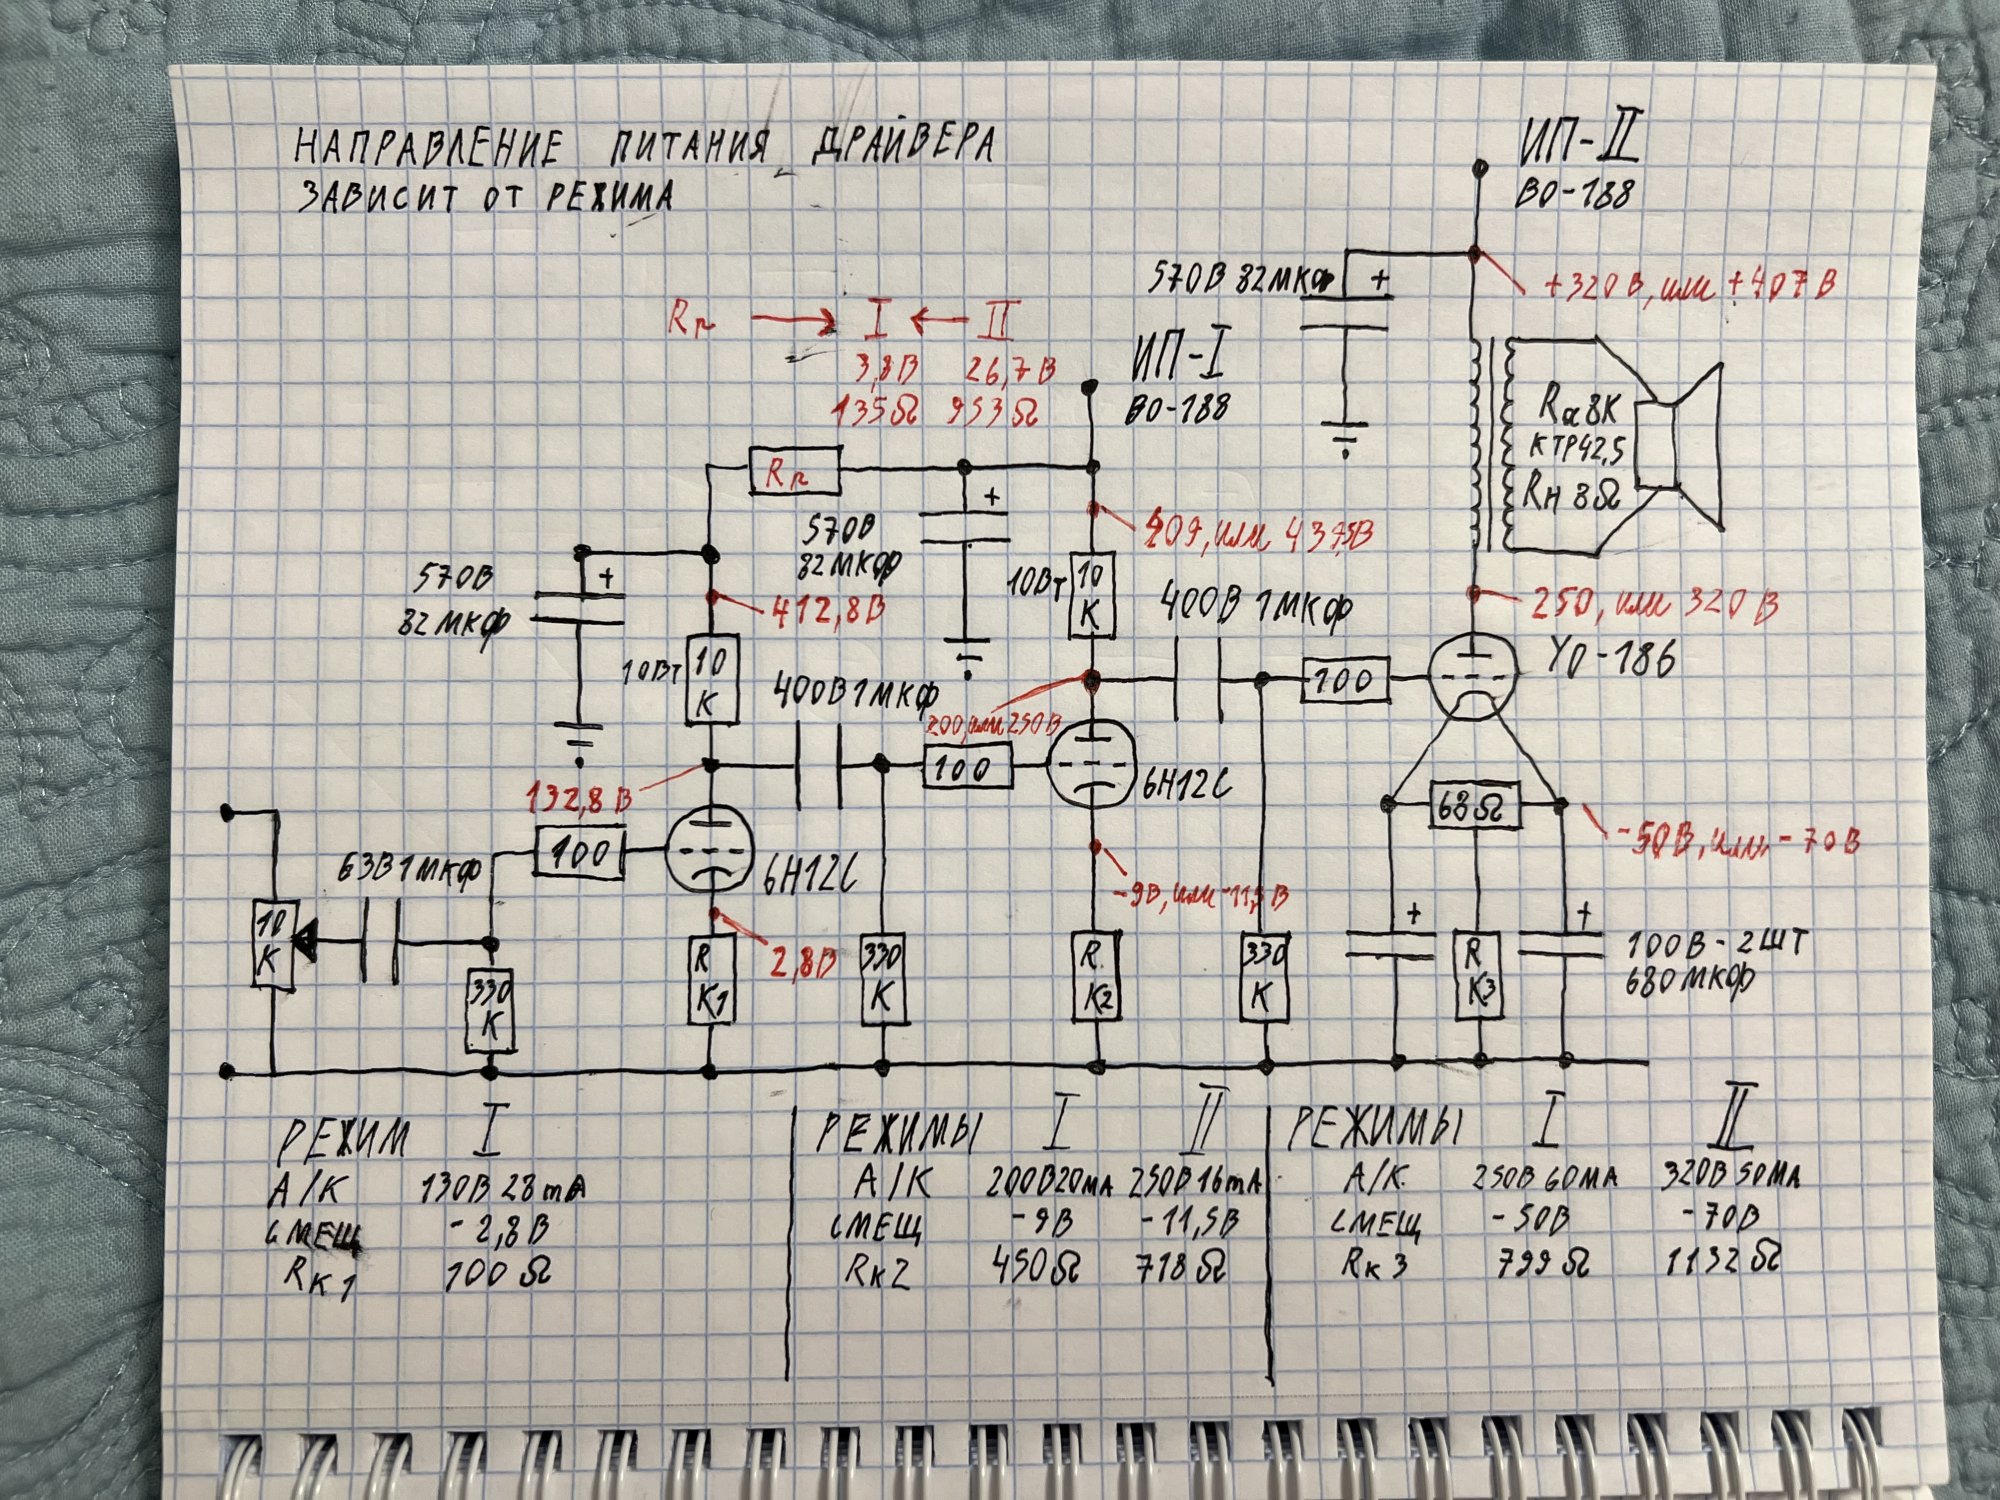 НАПРАВЛЕНИЕ ПИТАНИЯ ДРАЙВЕРА
ЗАВИСИТ ОТ РЕЖИМА
ИП-II
ВО-188
+320В, или +407В
570В 82МКФ
+
Rг → I ← II
3,8В 26,7В
135Ω 953Ω
ИП-I
ВО-188
Rа 8К
КТР42,5
Rн 8Ω
Rг
+
409, или 437,5В
570В
82МКФ
570В
82МКФ
+
412,8В
10Вт
10
К
400В 1МКФ
250, или 320В
УО-186
10Вт
10
К
400В 1МКФ
200, или 250В
100
100
6Н12С
132,8В
68Ω
-50В, или -70В
63В 1МКФ
100
6Н12С
-9В, или -11,5В
10
К
330
К
R
К1
2,8В
330
К
R
К2
330
К
+
R
К3
+
100В - 2ШТ
680МКФ
РЕЖИМ I
А/К 130В 28mA
СМЕЩ -2,8В
Rк1 100Ω
РЕЖИМЫ I II
А/К 200В20мА 250В16mA
СМЕЩ -9В -11,5В
Rк2 450Ω 718Ω
РЕЖИМЫ I II
А/К 250В 60мА 320В 50мА
СМЕЩ -50В -70В
Rк3 799Ω 1132Ω